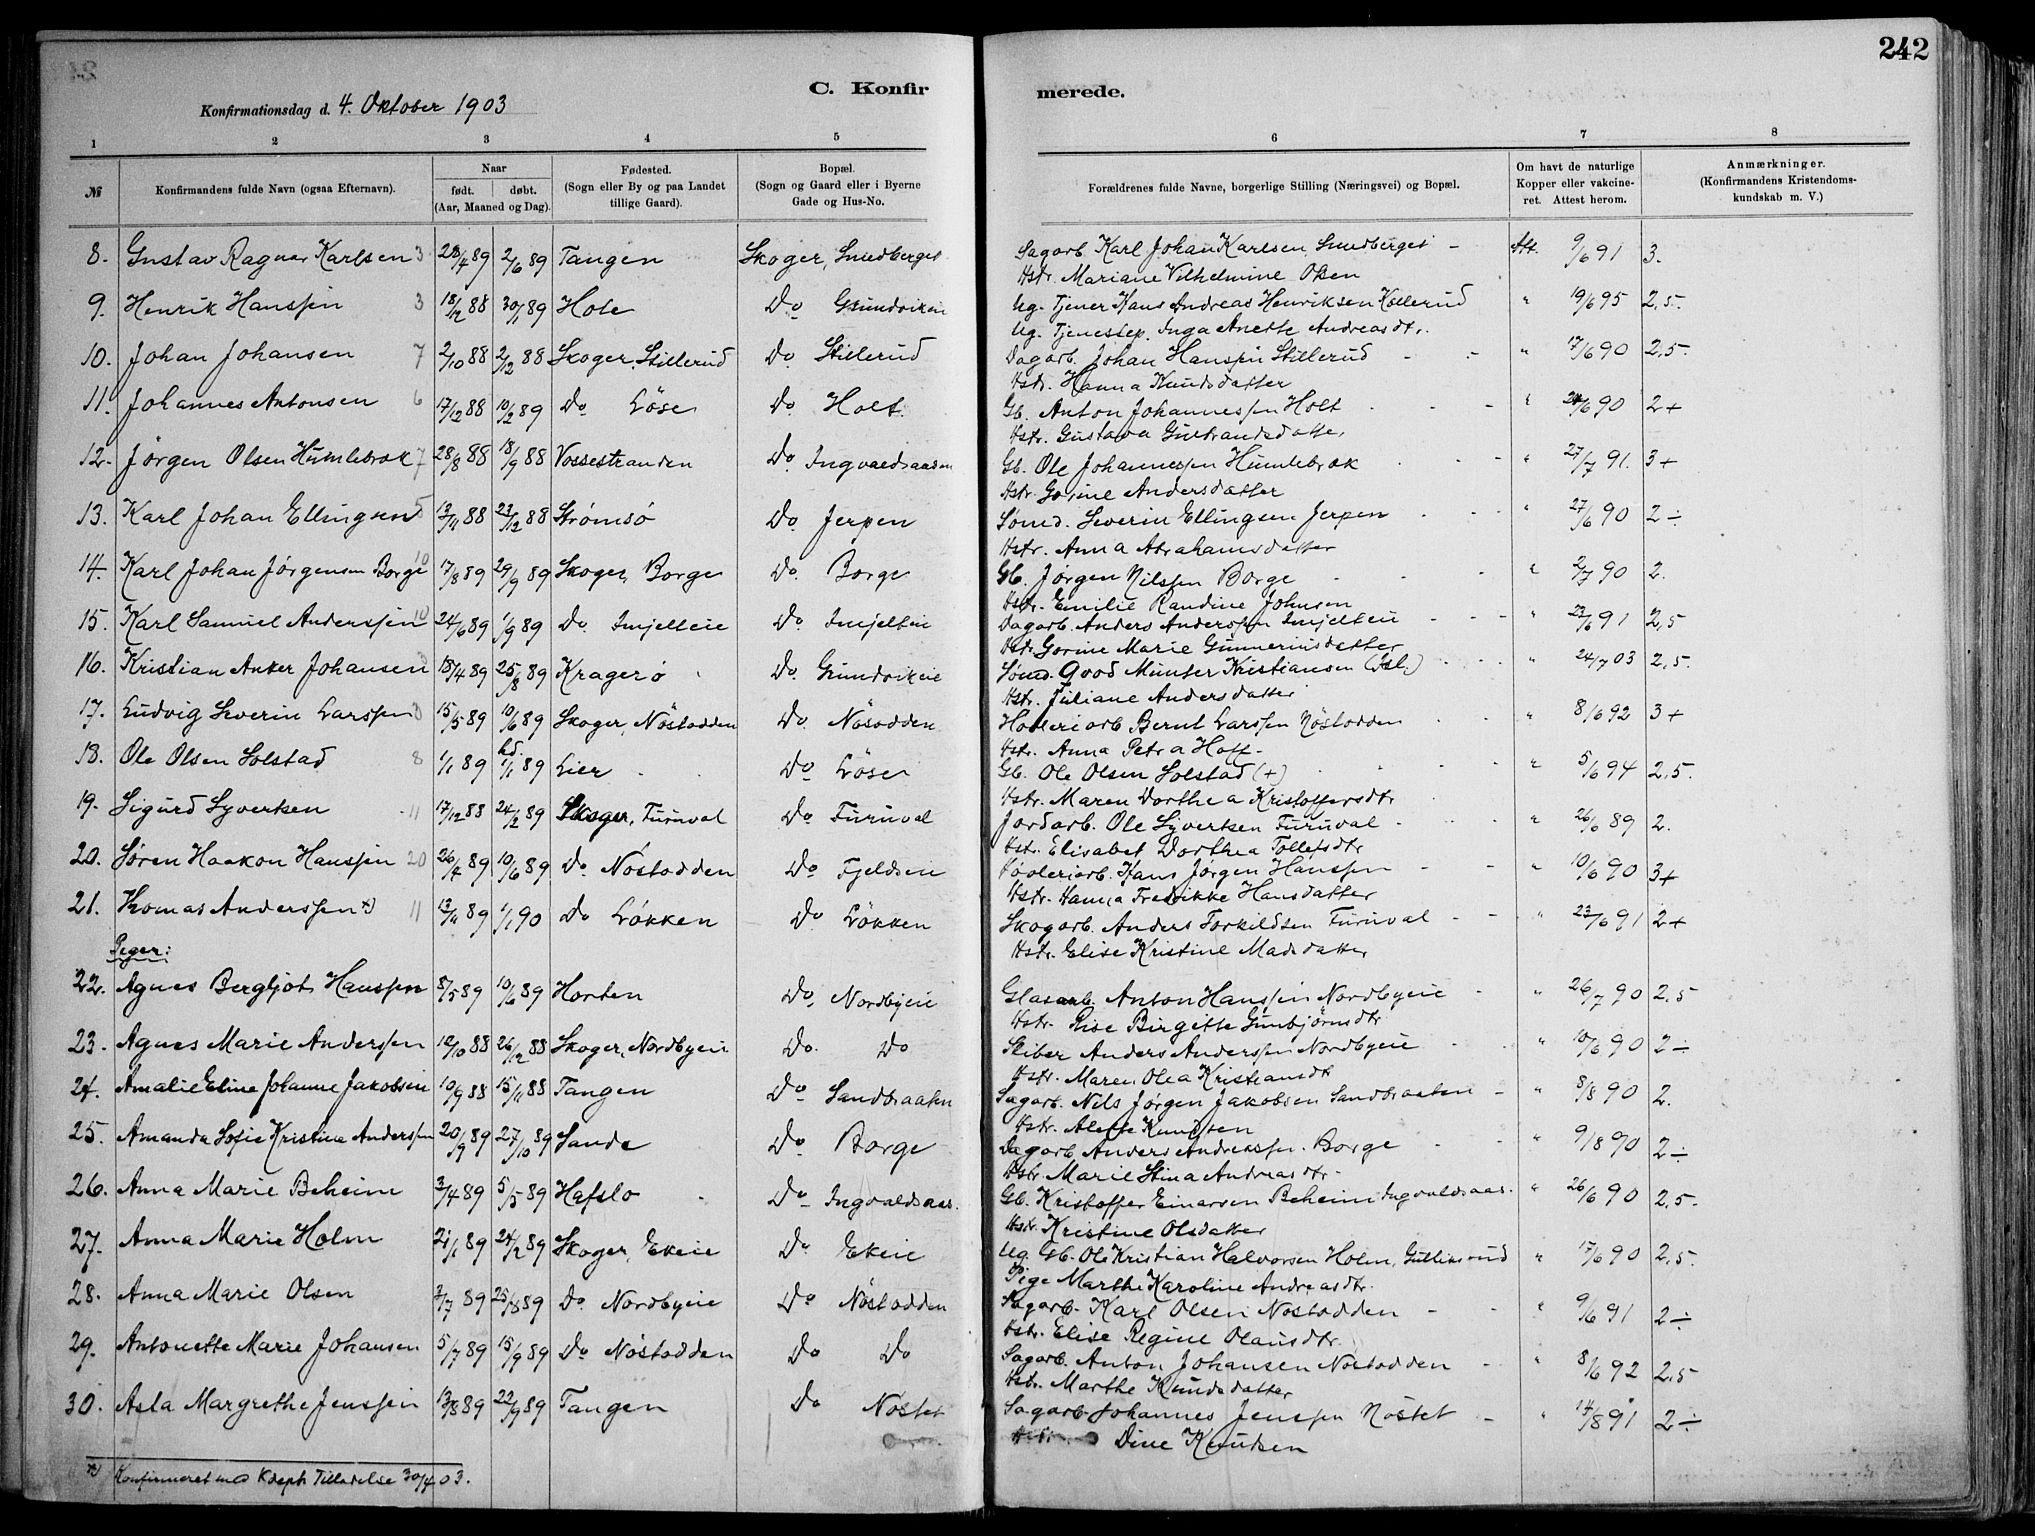 242
Konfirmationsdag d. 4. Oktober 1903
C. Konfir
merede.
1 2 3 4 5 6 7 8
№ Konfirmandens fulde Navn (ogsaa Efternavn). Naar født. døbt. (Aar, Maaned og Dag). Fødested. (Sogn eller By og paa Landet tillige Gaard). Bopæl. (Sogn og Gaard eller i Byerne Gade og Hus-No. Forældrenes fulde Navne, borgerlige Stilling (Næringsvei) og Bopæl. Om havt de naturlige Kopper eller vakcineret. Attest herom. Anmærkninger. (Konfirmandens Kristendomskundskab m. V.)
8. Gustav Ragnar Karlsen 3 28/4 89 2/6 89 Tangen Skoger, Smedberget Sagarb. Karl Johan Karlsen Smedberget - Att. 9/6 91 3.
Hstr. Mariane Vilhelmine Olsen
9. Henrik Hanssen 3 18/12 88 30/1 89 Hole Do Grundvikeie Ug. Tjener Hans Andreas Henriksen Kollerud " 19/6 95 2,5.
Ug. Tjenestep. Inga Anette Andreasdtr.
10. Johan Johansen 7 2/10 88 2/12 88 Skoger, Stillerud Do Stillerud Dagarb. Johan Hansen Stillerud " 17/6 90 2,5.
Hstr. Hanna Knudsdatter
11. Johannes Antonsen 6 17/12 88 10/2 89 Do Löse Do Holt. Gb. Anton Johannessen Holt " 24/6 90 2+
Hstr. Gustava Gulbrandsdatter
12. Jørgen Olsen Humlebrak 7 28/8 88 18/9 88 Vossestranden Do Ingvaldsaasen Gb. Ole Johannessen Humlebrak " 27/7 91. 3+
Hstr. Gorine Andersdatter
13. Karl Johan Ellingsen 5 13/11 88 23/12 88 Strømsø Do Jerpen Sømd. Severin Ellingsen Jerpen " 27/6 90 2÷
Hstr. Anna Abrahamsdatter
14. Karl Johan Jørgensen Borge 10 17/8 89 29/9 89 Skoger, Borge Do Borge Gb. Jørgen Nilssen Borge " 2/7 90 2.
Hstr. Emilie Randine Johnsen
15. Karl Samuel Anderssen 10 24/6 89 1/9 89 Do. Imjelteie Do. Imjelteie Dagarb. Anders Anderssen Imjelteie " 23/6 91 2,5
Hstr. Gorine Marie Gunneriusdatter
16. Kristian Anker Johansen 3 18/4 89 25/8 89 Kragerø Do. Grundvikeie Sømd. Qvod Munter Kristiansen " 24/7 03 2,5.
Hstr. Juliane Andersdatter
17. Ludvig Severin Larssen 3 15/5 89 10/6 89 Skoger, Nöstodden Do. Nösodden Hövleriarb Bernt Larssen Nöstodden " 8/6 92 3+
Hstr. Anna Petra Hoff-
18. Ole Olsen Solstad 8 1/1 89 hd. 1/1 89 Lier Do Löse Gb. Ole Olsen Solstad (+) " 5/6 94 2,5.
Hstr. Maren Dorthea Kristoffersdtr
19. Sigurd Syvertsen 11 17/12 88 24/2 89 Skoger, Furuval Do Furuval Jordarb. Ole Syvertsen Furuval " 26/6 89 2.
Hstr. Elisabet Dorthea Tollefsdtr
20. Søren Haakon Hanssen 20 26/4 89 10/6 89 Do Nöstodden Do Fjeldseie Hövleriarb. Hans Jørgen Hanssen " 10/6 90 3+
Hstr. Hanna Fredrikke Hansdatter
21. Thomas Anderssen *) 11 13/11 89 1/1 90 Do Løkken Do Løkken Skogarb. Anders Torkildsen Furuval " 23/6 91 2+
Hstr. Elise Kristine Madsdatter
Piger:
22. Agnes Bergljot Hanssen 8/5 89 10/6 89 Horten Do. Nordbyeie Glasarb. Anton Hanssen Nordbyeie " 26/7 90 2,5
Hstr. Lise Birgitte Gunbjørnsdtr
23. Agnes Marie Anderssen 12/10 88 26/12 88 Skoger, Nordbyeie Do. Do Skiber Anders Anderssen Nordbyeie " 10/6 90 2÷
Hstr. Maren Olea Kristiansdt
24. Amalie Eline Johanne Jakobsen 10/9 88 15/11 88 Tangen Do Sandbraaten Sagarb. Nils Jørgen Jakobsen Sandbraaten " 8/8 90 2.
Hstr. Alette Knudsen
25. Amanda Sofie Kristine Anderssen 20/9 89 27/10 89 Sande Do Borge Dagarb Anders Andreassen Borge " 9/8 90 2÷
Hstr Marie Stina Andreasdtr
26. Anna Marie Beheim 3/4 89 5/5 89 Hafslo Do Ingvaldsaas. Gb. Kristoffer Einarsen Beheim Ingvaldsaas. " 26/6 90 2,5.
Hstr Kristine Olsdatter
27. Anna Marie Holm 21/1 89 24/2 89 Skoger, Ekeie Do Ekeie Ug. Gb. Ole Kristian Halvorsen Holm, Gulliksrud " 17/6 90 2,5.
Pige Marthe Karoline Andreasdtr.
28. Anna Marie Olsen 3/7 89 25/8 89 Do Nordbyeie Do Nöstodden Sagarb. Karl Olsen Nöstodden " 9/6 91 2÷
Hstr. Elise Regine Olausdtr.
29. Antonette Marie Johansen 5/7 89 15/9 89 Do Nöstodden Do Do Sagarb. Anton Johansen Nöstodden " 8/6 92 2,5
Hstr. Marthe Knudsdatter
30. Asla Margrethe Jenssen 13/8 89 22/9 89 Tangen Do Nöstet Sagarb Johannes Jenssen Nöstet " 14/8 91 2÷
Dine Knudsen
*) Konfirmeret med Tilladelse 30/4 03.